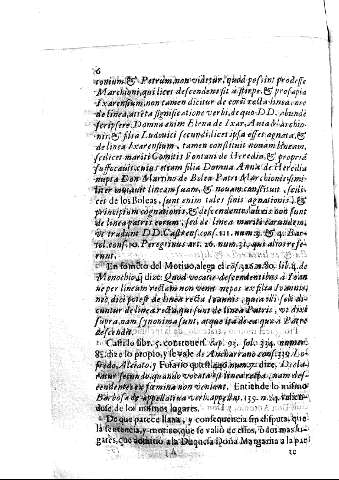 6
tonium, & Patrum, non videtur, quod possint prodesse
Marchioni, qui licet descendens sit a stirpe, & prosapia
Ixarensium, non tamen dicitur de recta linea,
de linea, atteta significatione verbi, de quo DD. abunde
scripsere. Domna enim Elena de Ixar, Auia Marchio-
nis, & filia Ludouici secundi licet ipsa esset agnata, &
de linea Ixarensium, tamen constituit nouam lineam,
scilicet mariti Comitis Fontani de Heredia, & propriā
suffocauit, cuius etiam filia Domna Anna de Heredia
nupta Don Martino de Bolea Patri Marchionis simi-
liter mutauit lineam suam, & nouam constituit, scili-
cet de los Boleas, sunt enim tales finis agnationis, &
principium cognationis, & descendentes ab eis non sunt
de linea patris eorum, sed de linea mariti earundem,
vt tradunt DD. Castrens. cons. 111. num. 3. Bar-
tol. cons. 10. Peregrinus art. 26. num. 31, qui alios refe-
runt.
En fomēto del Motiuo, alega el cōs. lib. 4. de
Menochio, dize: Quod vocatis descendentibus a
per lineam rectam non venit nepos ex filia Ioannis,
nec dici potest de linea recta Ioannis, quia illi soli di-
cuntur de linea recta, qui sunt de linea Patris, vt dixi
supra, nam synonima sunt, atque ita de ea qua a Patre
descendit.
Castillo lib. 5. controuers. cap. 93. fol. 334. numer.
85. dize lo propio, y se vale de Ancharrano cons. 339. Lo-
fredo, Alciato, y Fusario quest. num. 7. dize, Decla-
ratur secundo, quando vocata est linea recta, nam des-
cendentes ex fœmina non venient. Entiende lo mismo
Barbosa de appellatiua verb. appellat. 139. n. 24. valien-
dose de los mismos lugares.
De que parece llana, y consequencia sin disputa, que
la sentencia, y motiuo, que se valió de ellos, y dos mas lu-
gares, que à la Duquesa Doña Margarita a la par
A
te